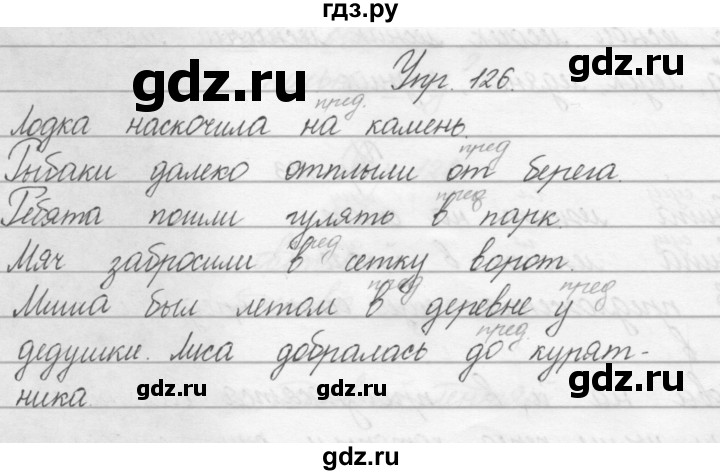 гдз.ру
gdz.ru
gdz.ru
Упр. 126.
пред.
Лодка наскочила на камень.
пред
Рыбаки далеко отплыли от берега.
пред
Ребята пошли гулять в парк.
gdz.ru
gdz.ru
пред
Мяч забросили в сетку ворот.
пред
пред
Миша был летом в деревне у
пред.
дедушки. Лиса добралась до курят-
ника.
gdz.ru
gdz.ru
gdz.ru
гдз.ру